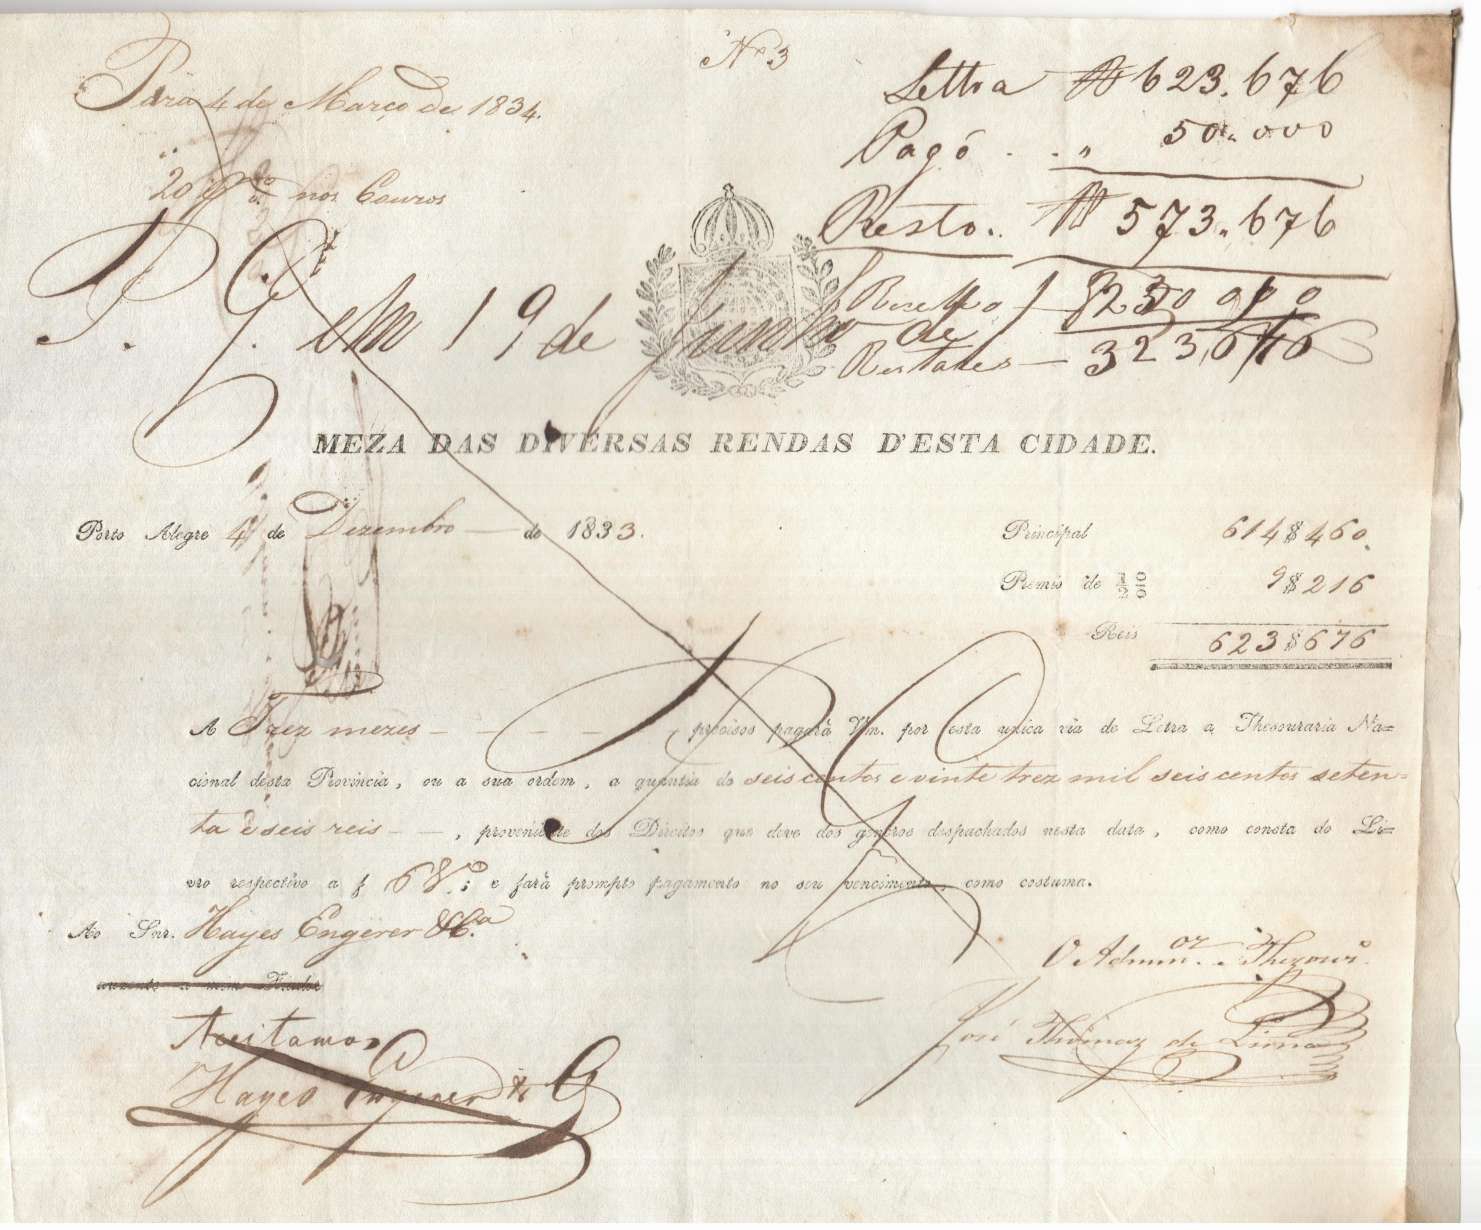 Nº 3
Pára 4 de Março de 1834.
Lettra 623.676
Pagó . . " 50.000
20 nos Couros
Resto. 573.676
P. G. em 19 de Junho de
250 000
Restantes — 323,676
MEZA DAS DIVERSAS RENDAS D'ESTA CIDADE.
Porto Alegre 4 de Dezembro — de 1833.
Principal 614$460
Premio de 1/2 0/0 9$216
Reis 623$676
A Trez mezes — — — — precisos pagará Vm. por esta unica via de Letra a Thesouraria Na=
cional desta Provincia, ou a sua ordem, a quantia de seis centos e vinte trez mil seis centos seten=
ta e seis reis — —, proveniente dos Direitos que deve dos generos despachados nesta data, como consta do Li=
vro respectivo a f 6 Vº; e fará prompto pagamento no seu vencimento, como costuma.
Ao Snr. Hayes Engerer & Cª
auzente a mim Fiador
O Admmor. Thezouro
Aceitamos
José Thomaz de Lima
Hayes Engerer & C